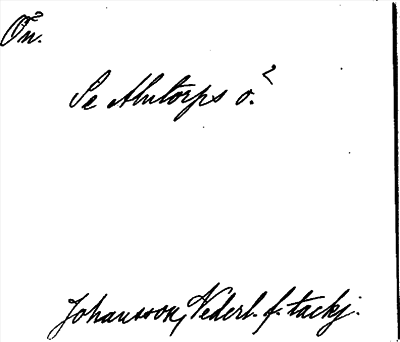 Ön.
Se Alntorps ö.²
Johansson, Nederl. f. täckj.